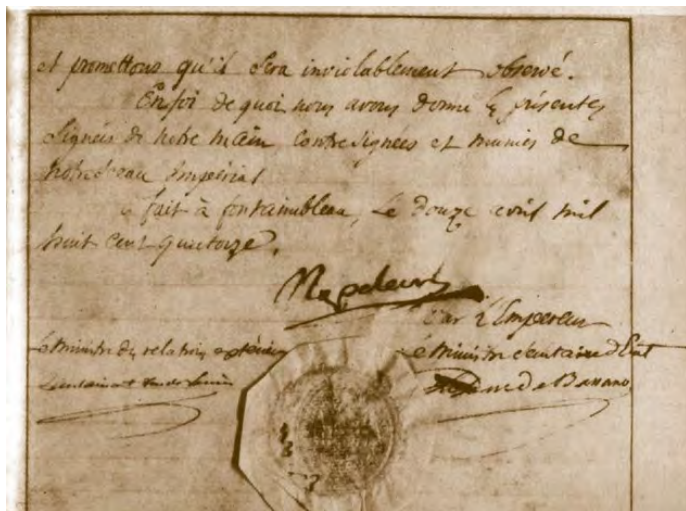 et promettons qu'il sera inviolablement observé.
En foi de quoi nous avons donné les présentes
signées de notre main contresignées et munies de
notre sceau impérial
fait à fontainebleau, le douze avril mil
huit cent quatorze.
Napoleon
Par l'Empereur
Le ministre des relations extérieures
Le ministre secrétaire d'Etat
Caulaincourt duc de
Le Duc de Bassano